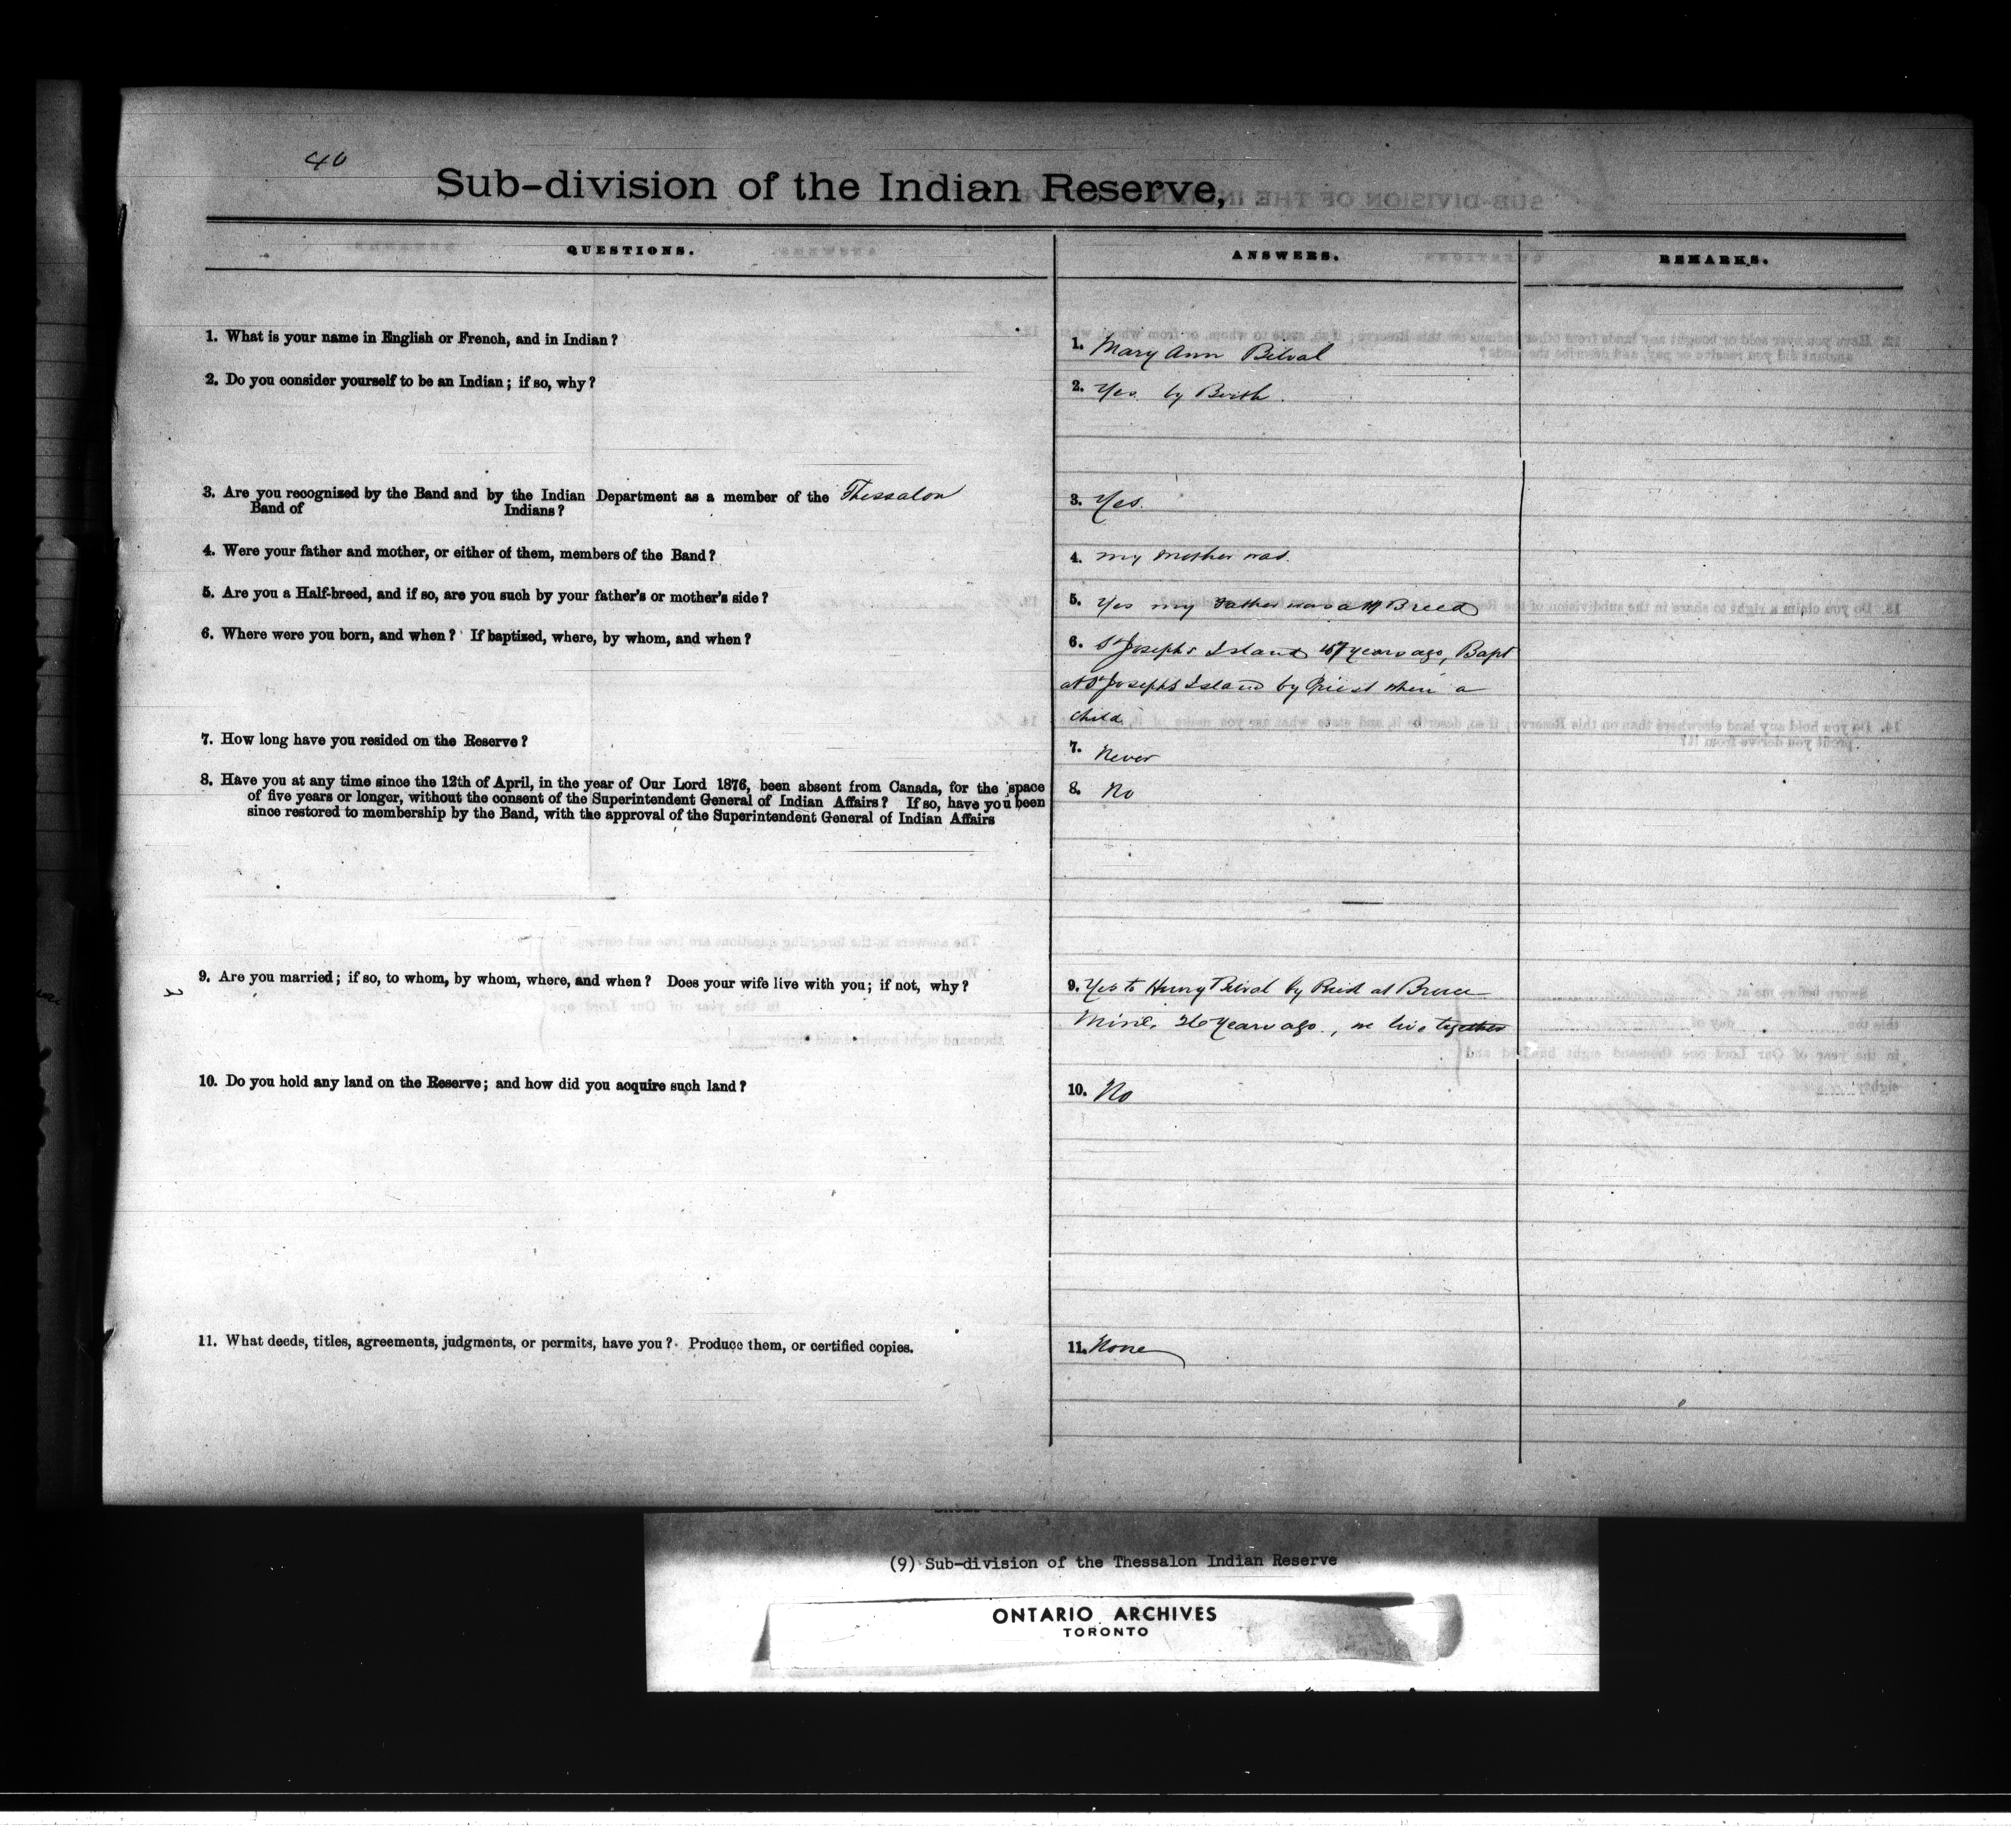 40
Sub-division of the Indian Reserve,
QUESTIONS.
ANSWERS.
REMARKS.
1. What is your name in English or French, and in Indian?
1. Mary Ann Belval
2. Do you consider yourself to be an Indian; if so, why?
2. Yes by Birth.
3. Are you recognized by the Band and by the Indian Department as a member of the Thessalon
Band of Indians?
3. Yes.
4. Were your father and mother, or either of them, members of the Band?
4. my mother was.
5. Are you a Half-breed, and if so, are you such by your father's or mother's side?
5. Yes my Father was a H Breed
6. Where were you born, and when? If baptized, where, by whom, and when?
6. St Josephs Island years ago, Bapt
at St Josephs Island by Priest when a
child.
7. How long have you resided on the Reserve?
7. Never
8. Have you at any time since the 12th of April, in the year of Our Lord 1876, been absent from Canada, for the space
of five years or longer, without the consent of the Superintendent General of Indian Affairs? If so, have you been
since restored to membership by the Band, with the approval of the Superintendent General of Indian Affairs
8. No
9. Are you married; if so, to whom, by whom, where, and when? Does your wife live with you; if not, why?
9. Yes to Henry Belval by Priest at Bruce
Mines 26 years ago., we live together
10. Do you hold any land on the Reserve; and how did you acquire such land?
10. No
11. What deeds, titles, agreements, judgments, or permits, have you? Produce them, or certified copies.
11. None
(9) Sub-division of the Thessalon Indian Reserve
ONTARIO ARCHIVES
TORONTO